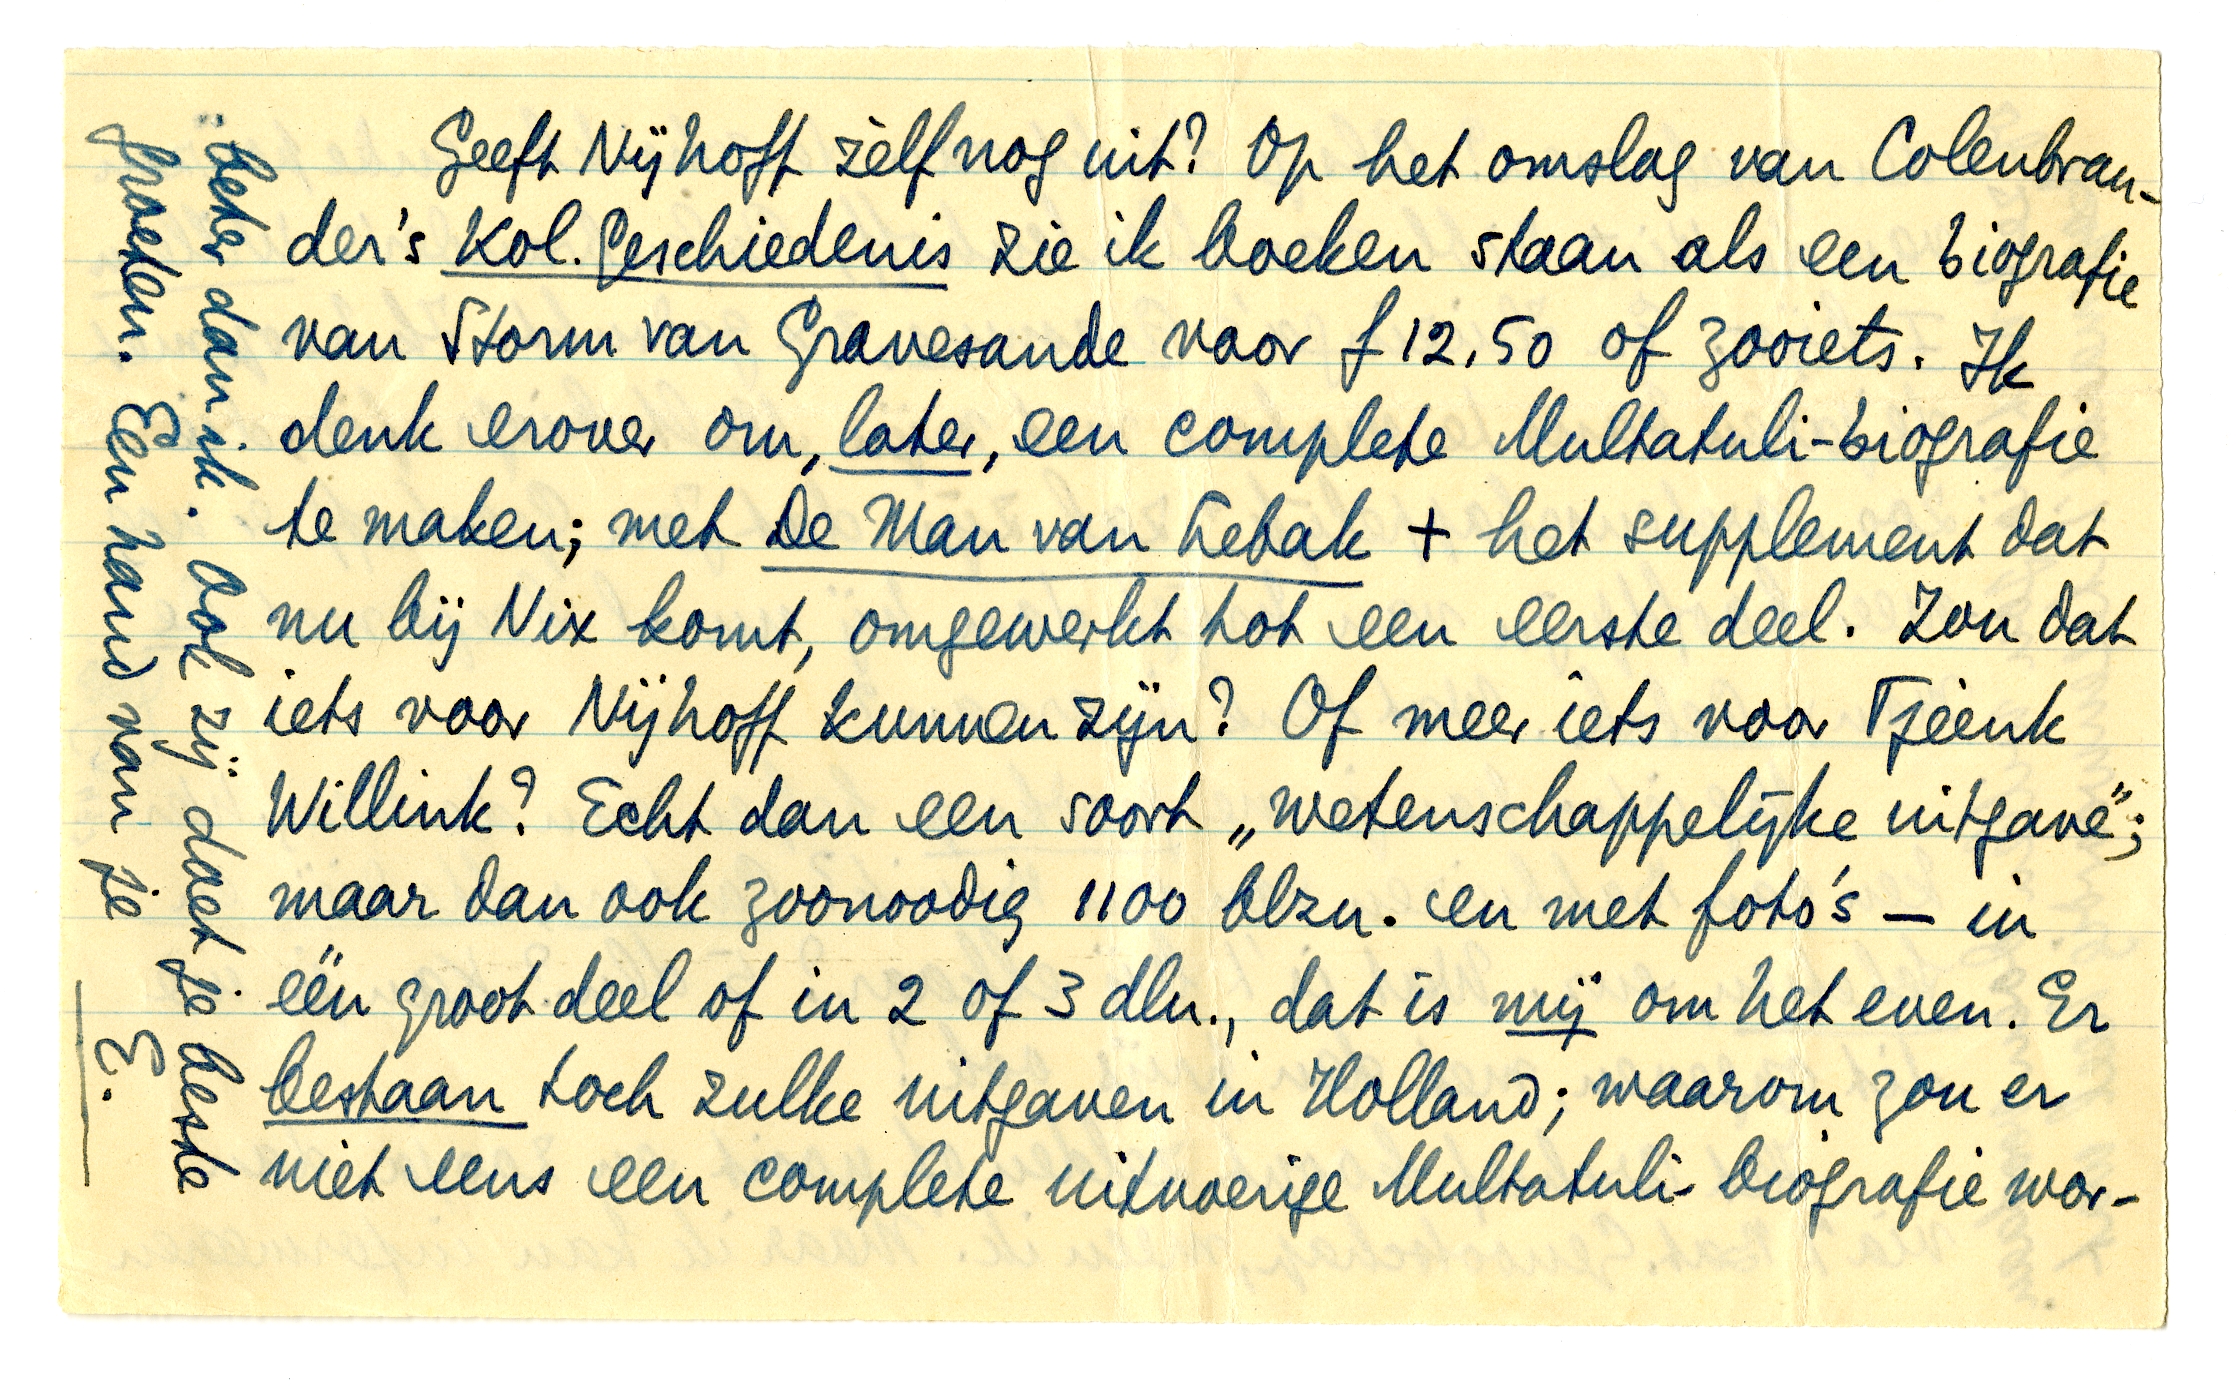 Geeft Nijhoff zèlf nog uit? Op het omslag van Colenbran-
der's Kol. Geschiedenis zie ik boeken staan als een biografie
van Storm van Gravesande voor f 12,50 of zooiets. Ik
denk erover om, later, een complete Multatuli-biografie
te maken; met De Man van Lebak + het supplement dat
nu bij Nix komt, omgewerkt tot een eerste deel. Zou dat
iets voor Nijhoff kunnen zijn? Of meer iets voor Tjeenk
Willink? Echt dan een soort „wetenschappelijke uitgave”;
maar dan ook zoonoodig 1100 blzn. en met foto's — in
één groot deel of in 2 of 3 dln., dat is mij om het even. Er
bestaan toch zulke uitgaven in Holland; waarom zou er
niet eens een complete uitvoerige Multatuli-biografie wor-
beter dan ik. Ook zij doet je beste
groeten. Een hand van je
E.